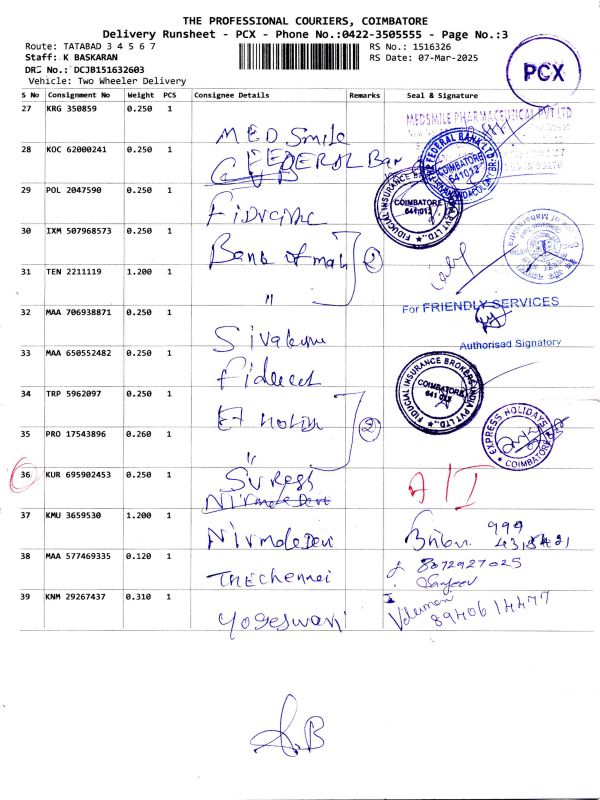 THE PROFESSIONAL COURIERS, COIMBATORE
Delivery Runsheet - PCX - Phone No.:0422-3505555 - Page No.:3
Route: TATABAD 3 4 5 6 7
RS No.: 1516326
Staff: K BASKARAN
RS Date: 07-Mar-2025
DRS No.: DCJB151632603
Vehicle: Two Wheeler Delivery
PCX
S No Consignment No Weight PCS Consignee Details Remarks Seal & Signature
27 KRG 350859 0.250 1 MED Smile MEDSMILE PHARMACEUTICAL PVT LTD
28 KOC 62000241 0.250 1 FEDERAL Ban
THE FEDERAL BANK LTD. COIMBATORE 641012
29 POL 2047590 0.250 1
FIDUCIAL INSURANCE BROKERS INDIA PVT LTD., COIMBATORE 641 012
30 IXM 507968573 0.250 1 Bank of mah 2
31 TEN 2211119 1.200 1 "
For FRIENDLY SERVICES
32 MAA 706938871 0.250 1
Authorised Signatory
33 MAA 650552482 0.250 1
FIDUCIAL INSURANCE BROKERS INDIA PVT LTD., COIMBATORE 641 012
34 TRP 5962097 0.250 1 2
EXPRESS HOLIDAYS COIMBATORE
35 PRO 17543896 0.260 1 "
36 KUR 695902453 0.250 1 Suresh
37 KMU 3659530 1.200 1 Nirmala Devi
38 MAA 577469335 0.120 1 The Chennai 8072927025
Sanjeev
39 KNM 29267437 0.310 1 Yogeswari 8940614477